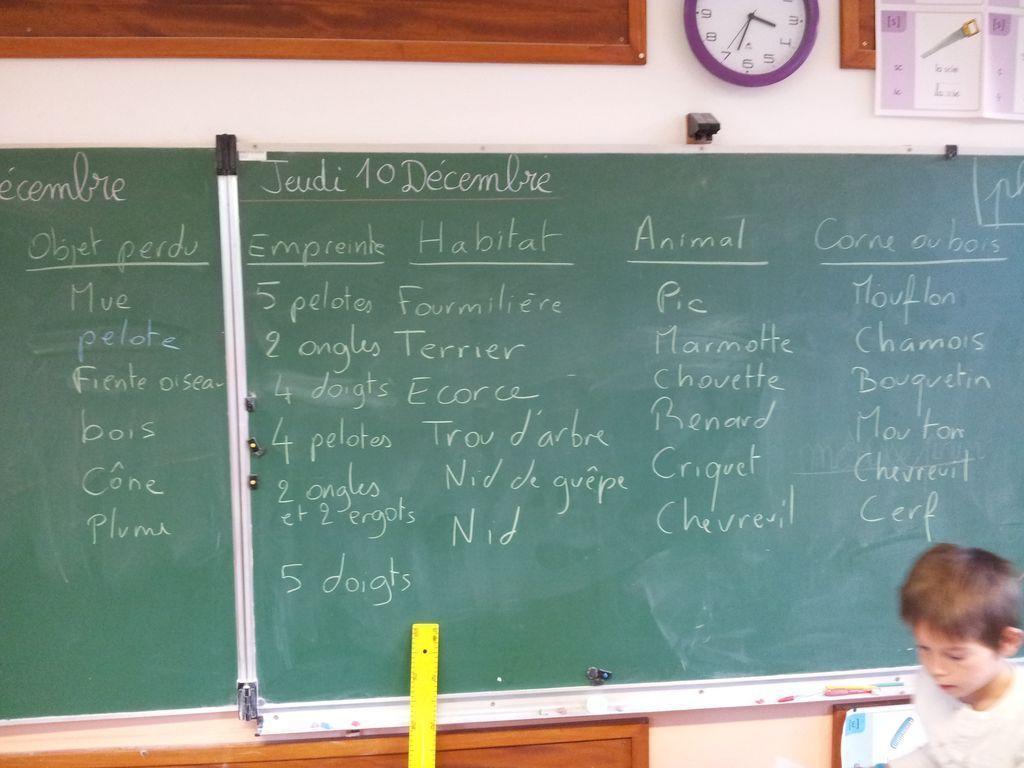 écembre
Objet perdu
Mue
pelote
Fiente oiseau
bois
Cône
Plume
Jeudi 10 Décembre
Empreinte
5 pelotes
2 ongles
4 doigts
4 pelotes
2 ongles
et 2 ergots
5 doigts
Habitat
Fourmilière
Terrier
Ecorce
Trou d'arbre
Nid de guêpe
Nid
Animal
Pic
Marmotte
Chouette
Renard
Criquet
Chevreuil
Corne ou bois
Mouflon
Chamois
Bouquetin
Mouton
Chevreuil
Cerf
9
8
7
6
5
4
[s]
sc
la scie
la scie
[s]